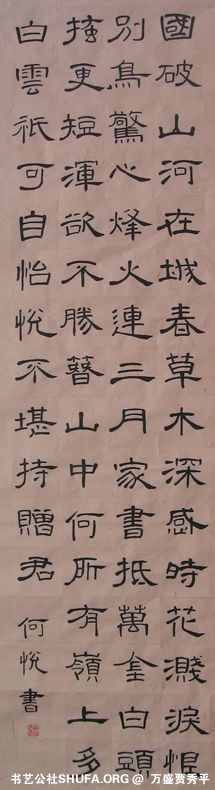 國破山河在城春草木深感時花濺淚恨
別鳥驚心烽火連三月家書抵萬金白頭
搔更短渾欲不勝簪山中何所有嶺上多
白雲祇可自怡悅不堪持贈君
何悅書
书艺公社SHUFA.ORG @ 万盛贾秀平